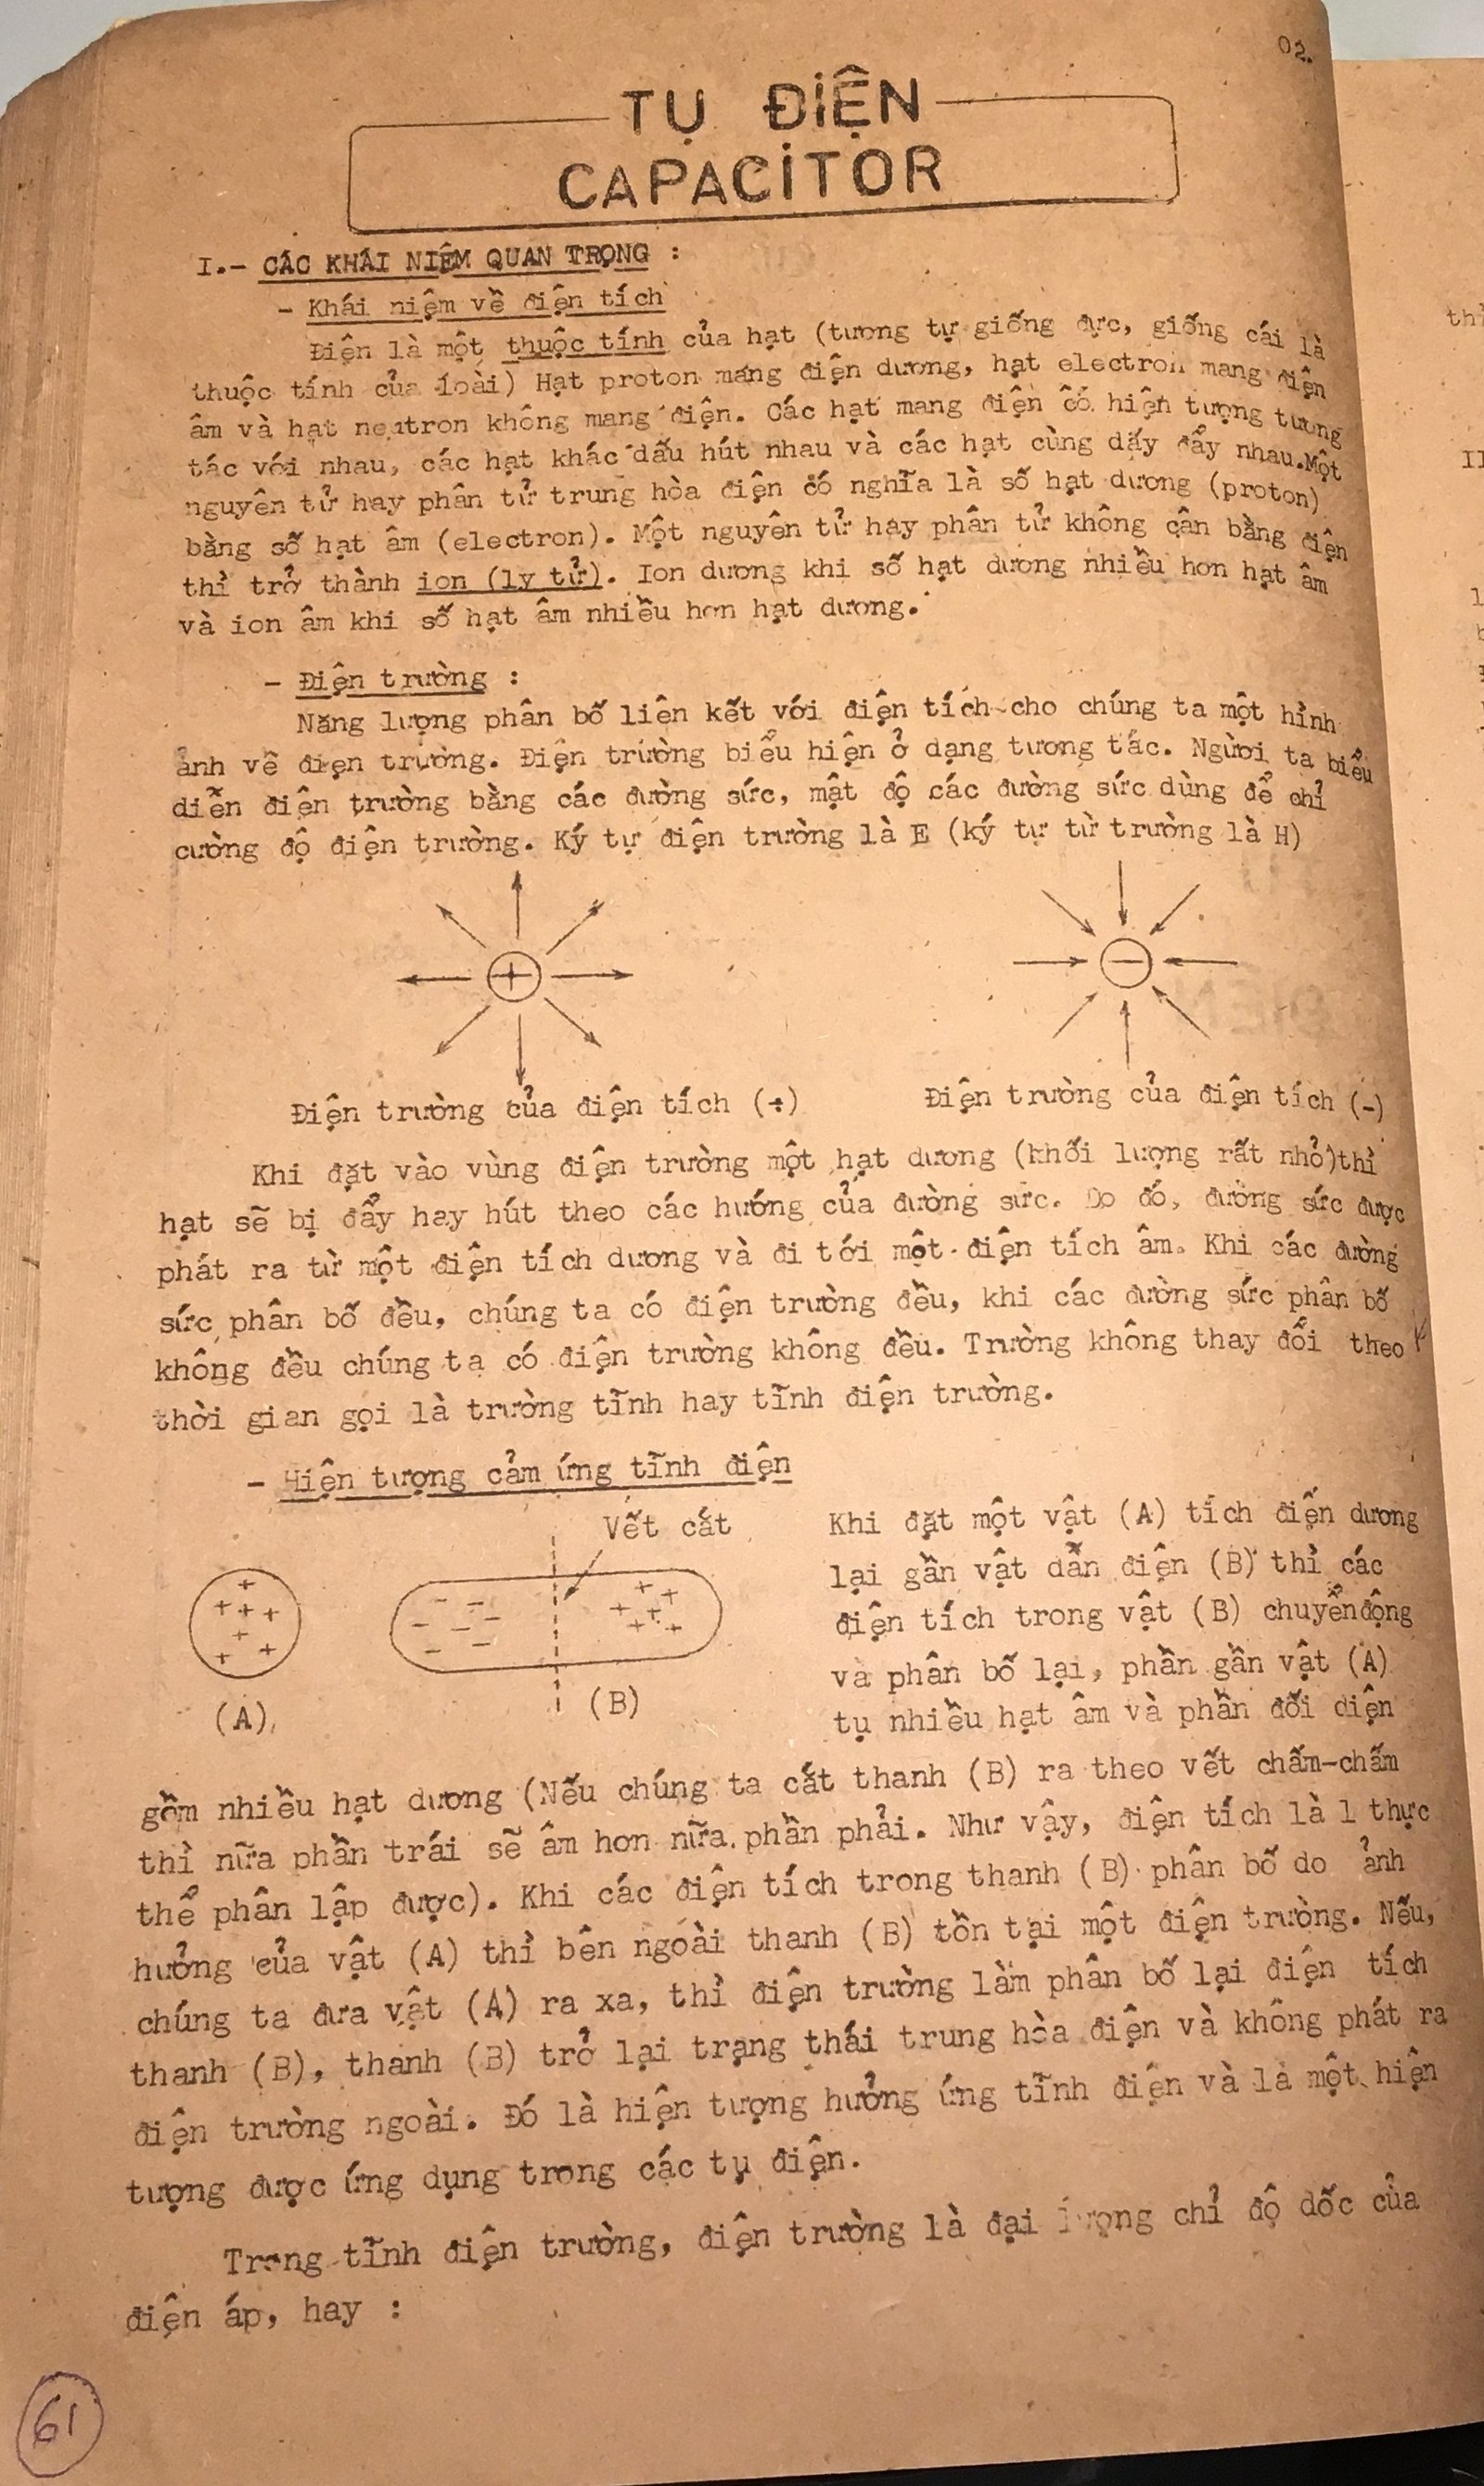 02.
TỤ ĐIỆN
CAPACITOR
I.- CÁC KHÁI NIỆM QUAN TRỌNG :
- Khái niệm về điện tích
Điện là một thuộc tính của hạt (tương tự giống đực, giống cái là
thuộc tính của loài) Hạt proton mang điện dương, hạt electron mang điện
âm và hạt neutron không mang điện. Các hạt mang điện có hiện tượng tương
tác với nhau, các hạt khác dấu hút nhau và các hạt cùng dấy đẩy nhau.Một
nguyên tử hay phân tử trung hòa điện có nghĩa là số hạt dương (proton)
bằng số hạt âm (electron). Một nguyên tử hay phân tử không cân bằng điện
thì trở thành ion (ly tử). Ion dương khi số hạt dương nhiều hơn hạt âm
và ion âm khi số hạt âm nhiều hơn hạt dương.
- Điện trường :
Năng lượng phân bố liên kết với điện tích cho chúng ta một hình
ảnh về điện trường. Điện trường biểu hiện ở dạng tương tác. Người ta biểu
diễn điện trường bằng các đường sức, mật độ các đường sức dùng để chỉ
cường độ điện trường. Ký tự điện trường là E (ký tự từ trường là H)
+
−
Điện trường của điện tích (+)
Điện trường của điện tích (-)
Khi đặt vào vùng điện trường một hạt dương (khối lượng rất nhỏ)thì
hạt sẽ bị đẩy hay hút theo các hướng của đường sức. Do đó, đường sức được
phát ra từ một điện tích dương và đi tới một điện tích âm. Khi các đường
sức phân bố đều, chúng ta có điện trường đều, khi các đường sức phân bố
không đều chúng ta có điện trường không đều. Trường không thay đổi theo
thời gian gọi là trường tĩnh hay tĩnh điện trường.
- Hiện tượng cảm ứng tĩnh điện
Vết cắt
(A)
(B)
Khi đặt một vật (A) tích điện dương
lại gần vật dẫn điện (B) thì các
điện tích trong vật (B) chuyểnđộng
và phân bố lại, phần gần vật (A)
tụ nhiều hạt âm và phần đối diện
gồm nhiều hạt dương (Nếu chúng ta cắt thanh (B) ra theo vết chấm-chấm
thì nữa phần trái sẽ âm hơn nữa phần phải. Như vậy, điện tích là 1 thực
thể phân lập được). Khi các điện tích trong thanh (B) phân bố do ảnh
hưởng của vật (A) thì bên ngoài thanh (B) tồn tại một điện trường. Nếu,
chúng ta đưa vật (A) ra xa, thì điện trường làm phân bố lại điện tích
thanh (B), thanh (B) trở lại trạng thái trung hòa điện và không phát ra
điện trường ngoài. Đó là hiện tượng hưởng ứng tĩnh điện và là một hiện
tượng được ứng dụng trong các tụ điện.
Trong tĩnh điện trường, điện trường là đại lượng chỉ độ dốc của
điện áp, hay :
61